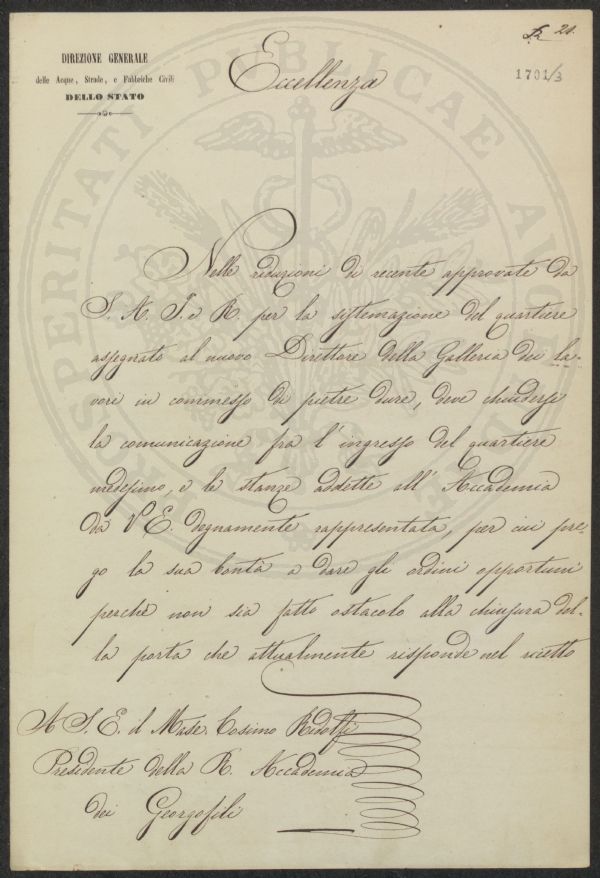 R 21.
1701/3
DIREZIONE GENERALE
delle Acque, Strade, e Fabbriche Civili
DELLO STATO
Eccellenza
Nelle reduzioni di recente approvate da
S. A. I. e R. per la sistemazione del quartiere
assegnato al nuovo Direttore della Galleria dei la-
vori in commesso di pietre dure, deve chiudersi
la comunicazione fra l' ingresso del quartiere
medesimo, e le stanze addette all' Accademia
da V. E. degnamente rappresentata, per cui pre-
go la sua bontà a dare gli ordini opportuni
perchè non sia fatto ostacolo alla chiusura del-
la porta che attualmente risponde nel ricetto
A S. E. il Marc. Cosimo Ridolfi
Presidente della R. Accademia
dei Georgofili
PROSPERITATI PUBLICAE AUGENDAE